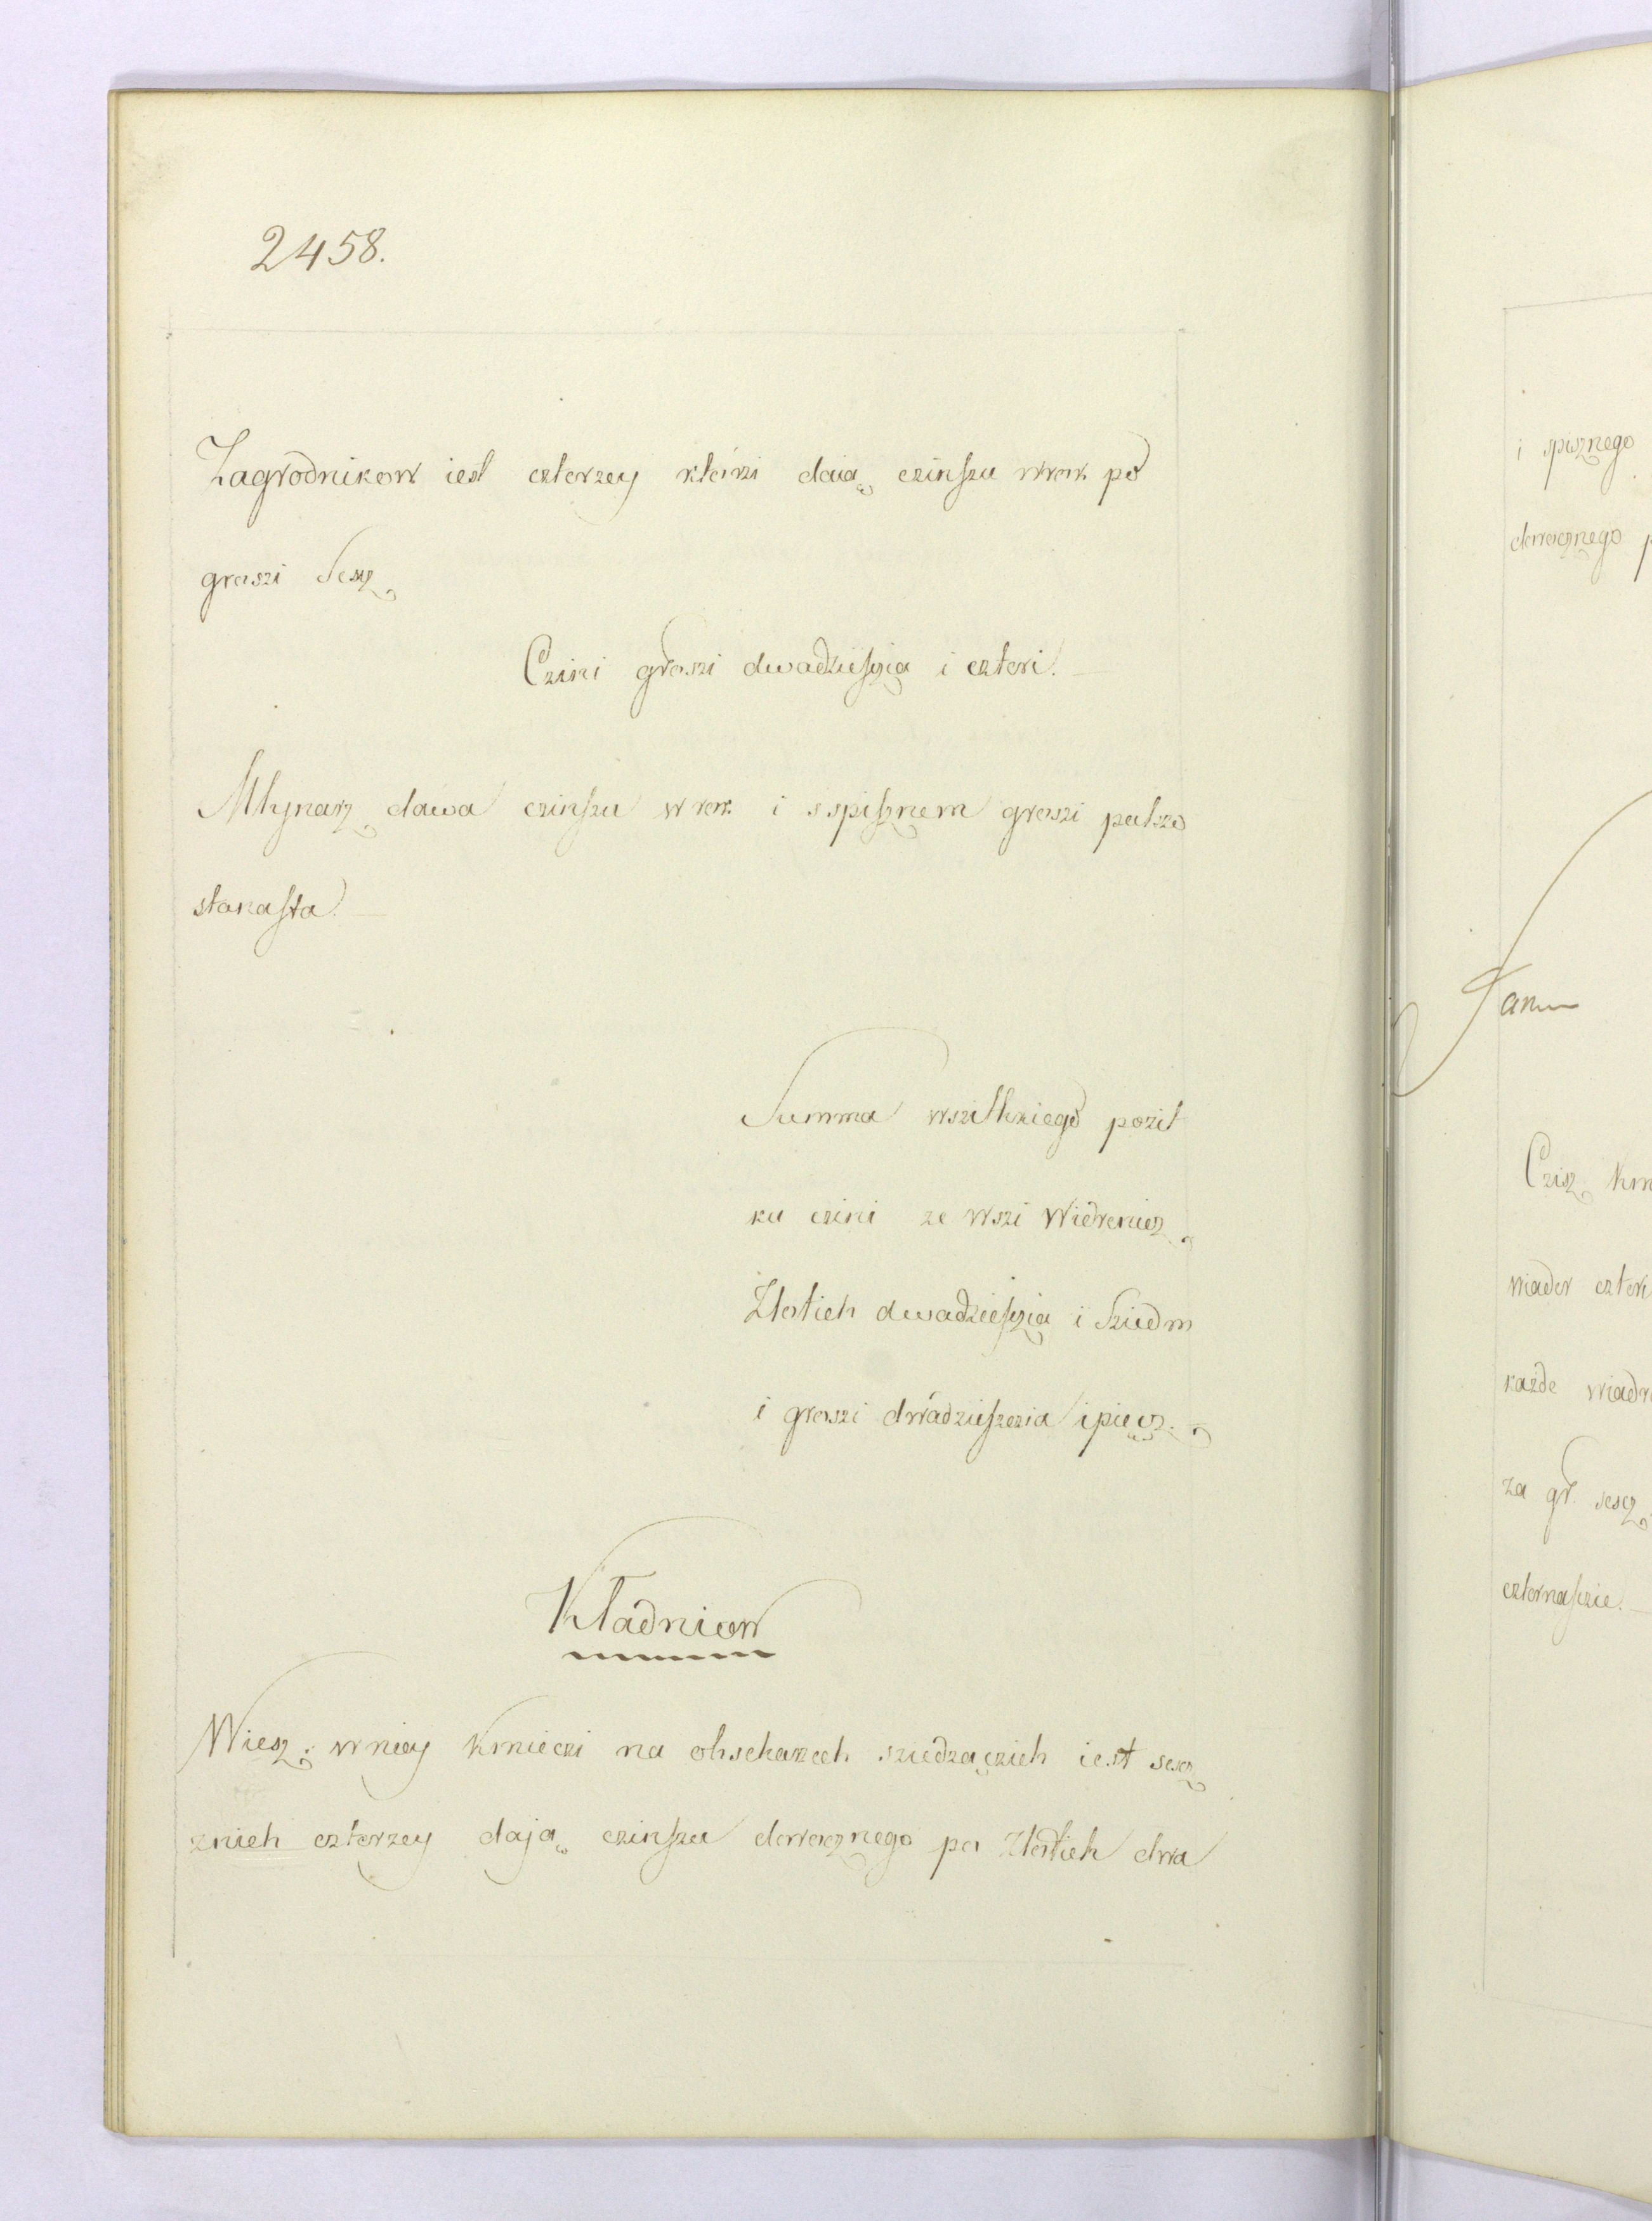 2458.
Zagrodnikow iest czterzey którzi daią czinszu wrok po
groszi sesz
Czini groszi dwadzieszia i czteri.
Młynarz dawa czinszu w rok i sspisznem groszi pułszo
stanasta.
Summa wszitkiego pozit
ku czini ze wszi Widreniez
Złotich dwadzieszia i Sziedm
i groszi dwadzieszczia i pięcz.
Kładniow
Wiesz. w niey kmieczi na obsekarzech sziedzączich iest sesz
znich czterzey dają czinszu dorocznego po Złotich dwa
i spisznego
dorocznego
Czisz
wiader czteri
każde wiadr
za gr. sesz
czternaszcie.